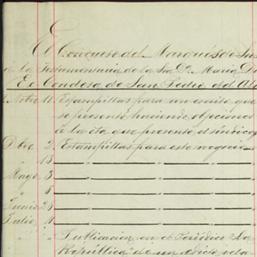 El Concurso del Marqués de Sn
á la Testamentaría de la Sra Da María D
Ex Condesa de San Pedro del Al
Nobre 11 Estampillas para un escrito que
se presentó haciendo objeciones
á la cta que presentó el síndico
Dbre 2 Estampillas para este negocio
" 13 " "
Mayo 5 " "
" " "
Junio 2 " "
Julio 1 " "
" Publicacion en el Periódico "La
República" de un